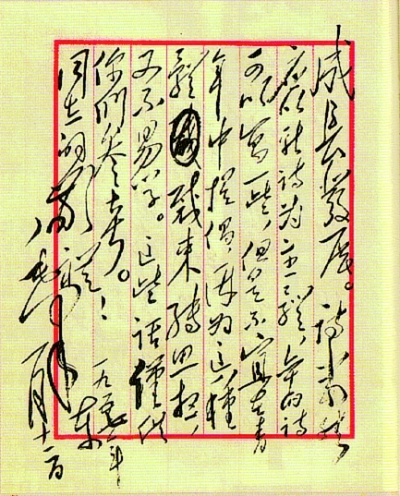 成长發展。詩当然
应以新詩为主体，旧的詩
可以写一些，但是不宜在青
年中提倡，因为这種
體裁束缚思想，
又不易学。这些話僅供
你们参考。
同志的敬礼！
毛泽东
一九五七年
一月十二日